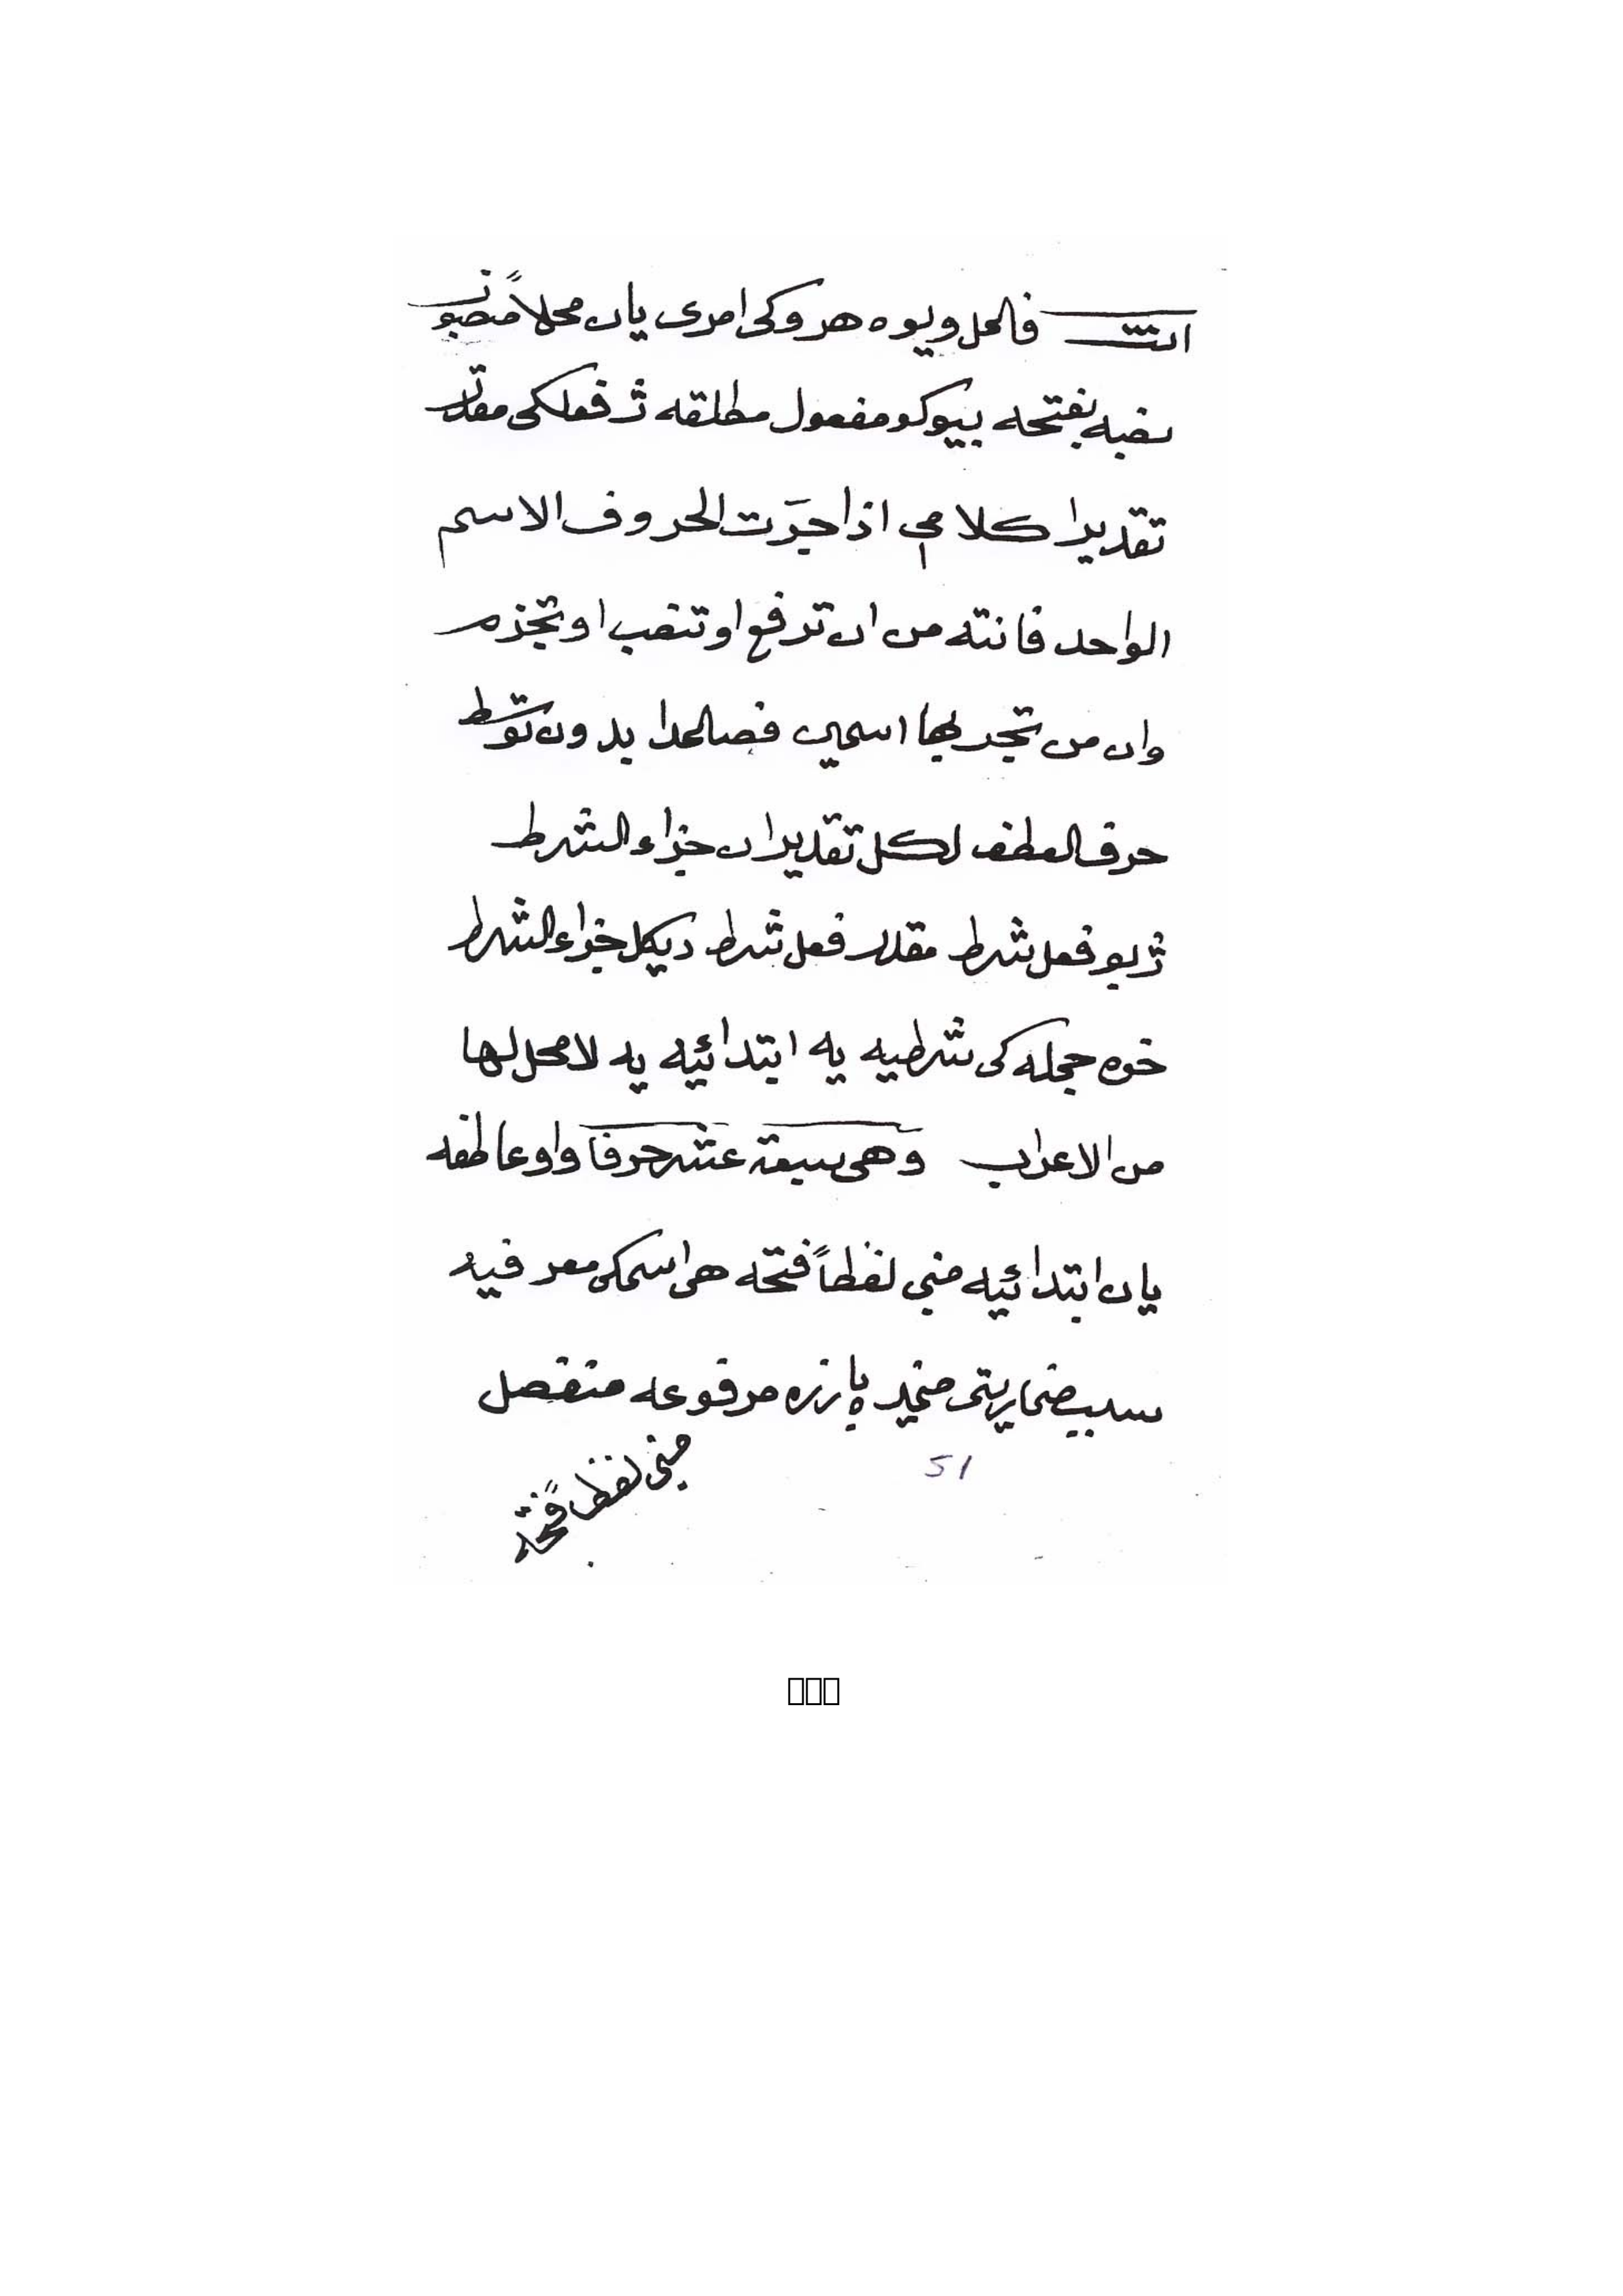 انتـ فالحل ويوه هروكى امرى يان محلاً منصوب
نصبه بفتحه بيوكو مفعول مطلقه ژ فعلكى مقدّر
تقديرا كلامى اذا جرّت الحروف الاسم
الواحد فانته من ان ترفع او تنصب او تجزم
وان من تجر بها اسمين فصالحدا بدون توسّط
حرف العطف لكل تقديران جزاء الشرط
ژبو فعل شرط مقدر فعل شرط ديكل جزاء الشرط
خوه جمله كى شرطيه يه ابتدائيه يه لا محل لها
من الاعراب وهى سبعة عشر حرفا واو عاطفه
يان ابتدائيه مبنى لفظاً فتحه هى اسمكى معرفيه
ضمير بارزه مرفوعه منفصل
مبنى لفظاً فتحه
51